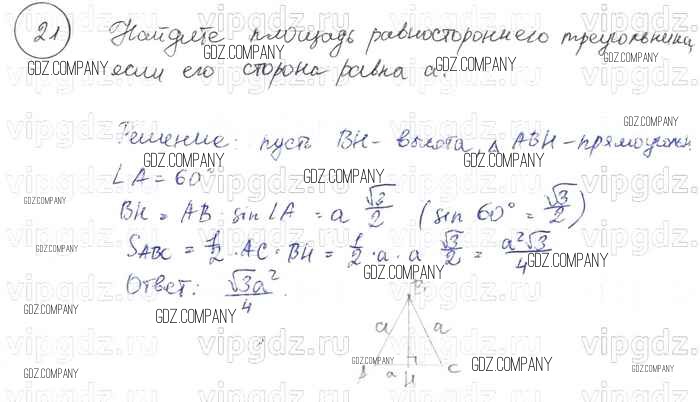 21 Найдите площадь равностороннего треугольника,
если его сторона равна a.
Решение: пусть BH – высота, Δ ABH – прямоугольн.
∠A = 60°
BH = AB · sin∠A = a √3/2 (sin 60° = √3/2)
S_ABC = 1/2 · AC · BH = 1/2 · a · a √3/2 = a²√3/4
Ответ: √3a²/4.
B
a a
A a H C
GDZ.COMPANY
vipgdz.ru